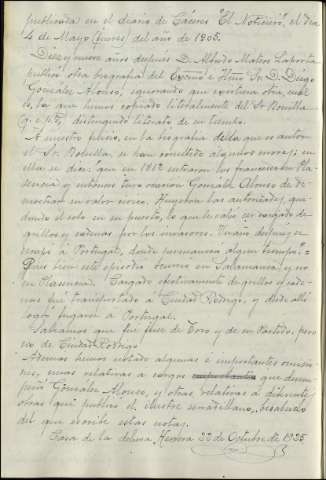 publicada en el diario de Cáceres "El Noticiero", el dia
4 de Mayo (jueves) del año de 1905.
Diez y nueve años despues D. Alfredo Mateos Laporta
publicó otra biografia del Excmo e Iltmo Sr. D. Diego
Gonzalez Alonso, ignorando que existiera otra, cual
lo, la que hemos copiado literalmente del Sr Bonilla
(q.e.p.d), distinguido literato de su tiempo.
A nuestro juicio, en la biografia de la que es autor
el Sr. Bonilla, se han cometido algunos errores; en
ella se dice que en 1812 entraron los franceses en Pla-
sencia y entonces tuvo ocasion Gonzalez Alonso de de-
mostrar su valor civico. Huyeron las autoridades, que-
dando el solo en su puesto, lo que le valio ser cargado de
grillos y cadenas por los invasores. Un año despues se
escapó a Portugal, donde permanecio algun tiempo"=
Pues bien este episodio ocurrió en Salamanca y no
en Plasencia. Cargado efectivamente de grillos y cade-
nas fue transportado a Ciudad Rodrigo, y desde alli
logró fugarse a Portugal.
Sabiamos que fue Juez de Toro y de su Partido, pero
no de Ciudad Rodrigo
Ademas hemos notado algunas é importantes omisio-
nes, unas relativas a cargos importantes que desem-
peñó Gonzalez Alonso, y otras relativas á diferentes
obras que publicó el ilustre , besabuelo
del que escribe estas notas.
Casa de la dehesa, Herrera 22 de Octubre de 1935